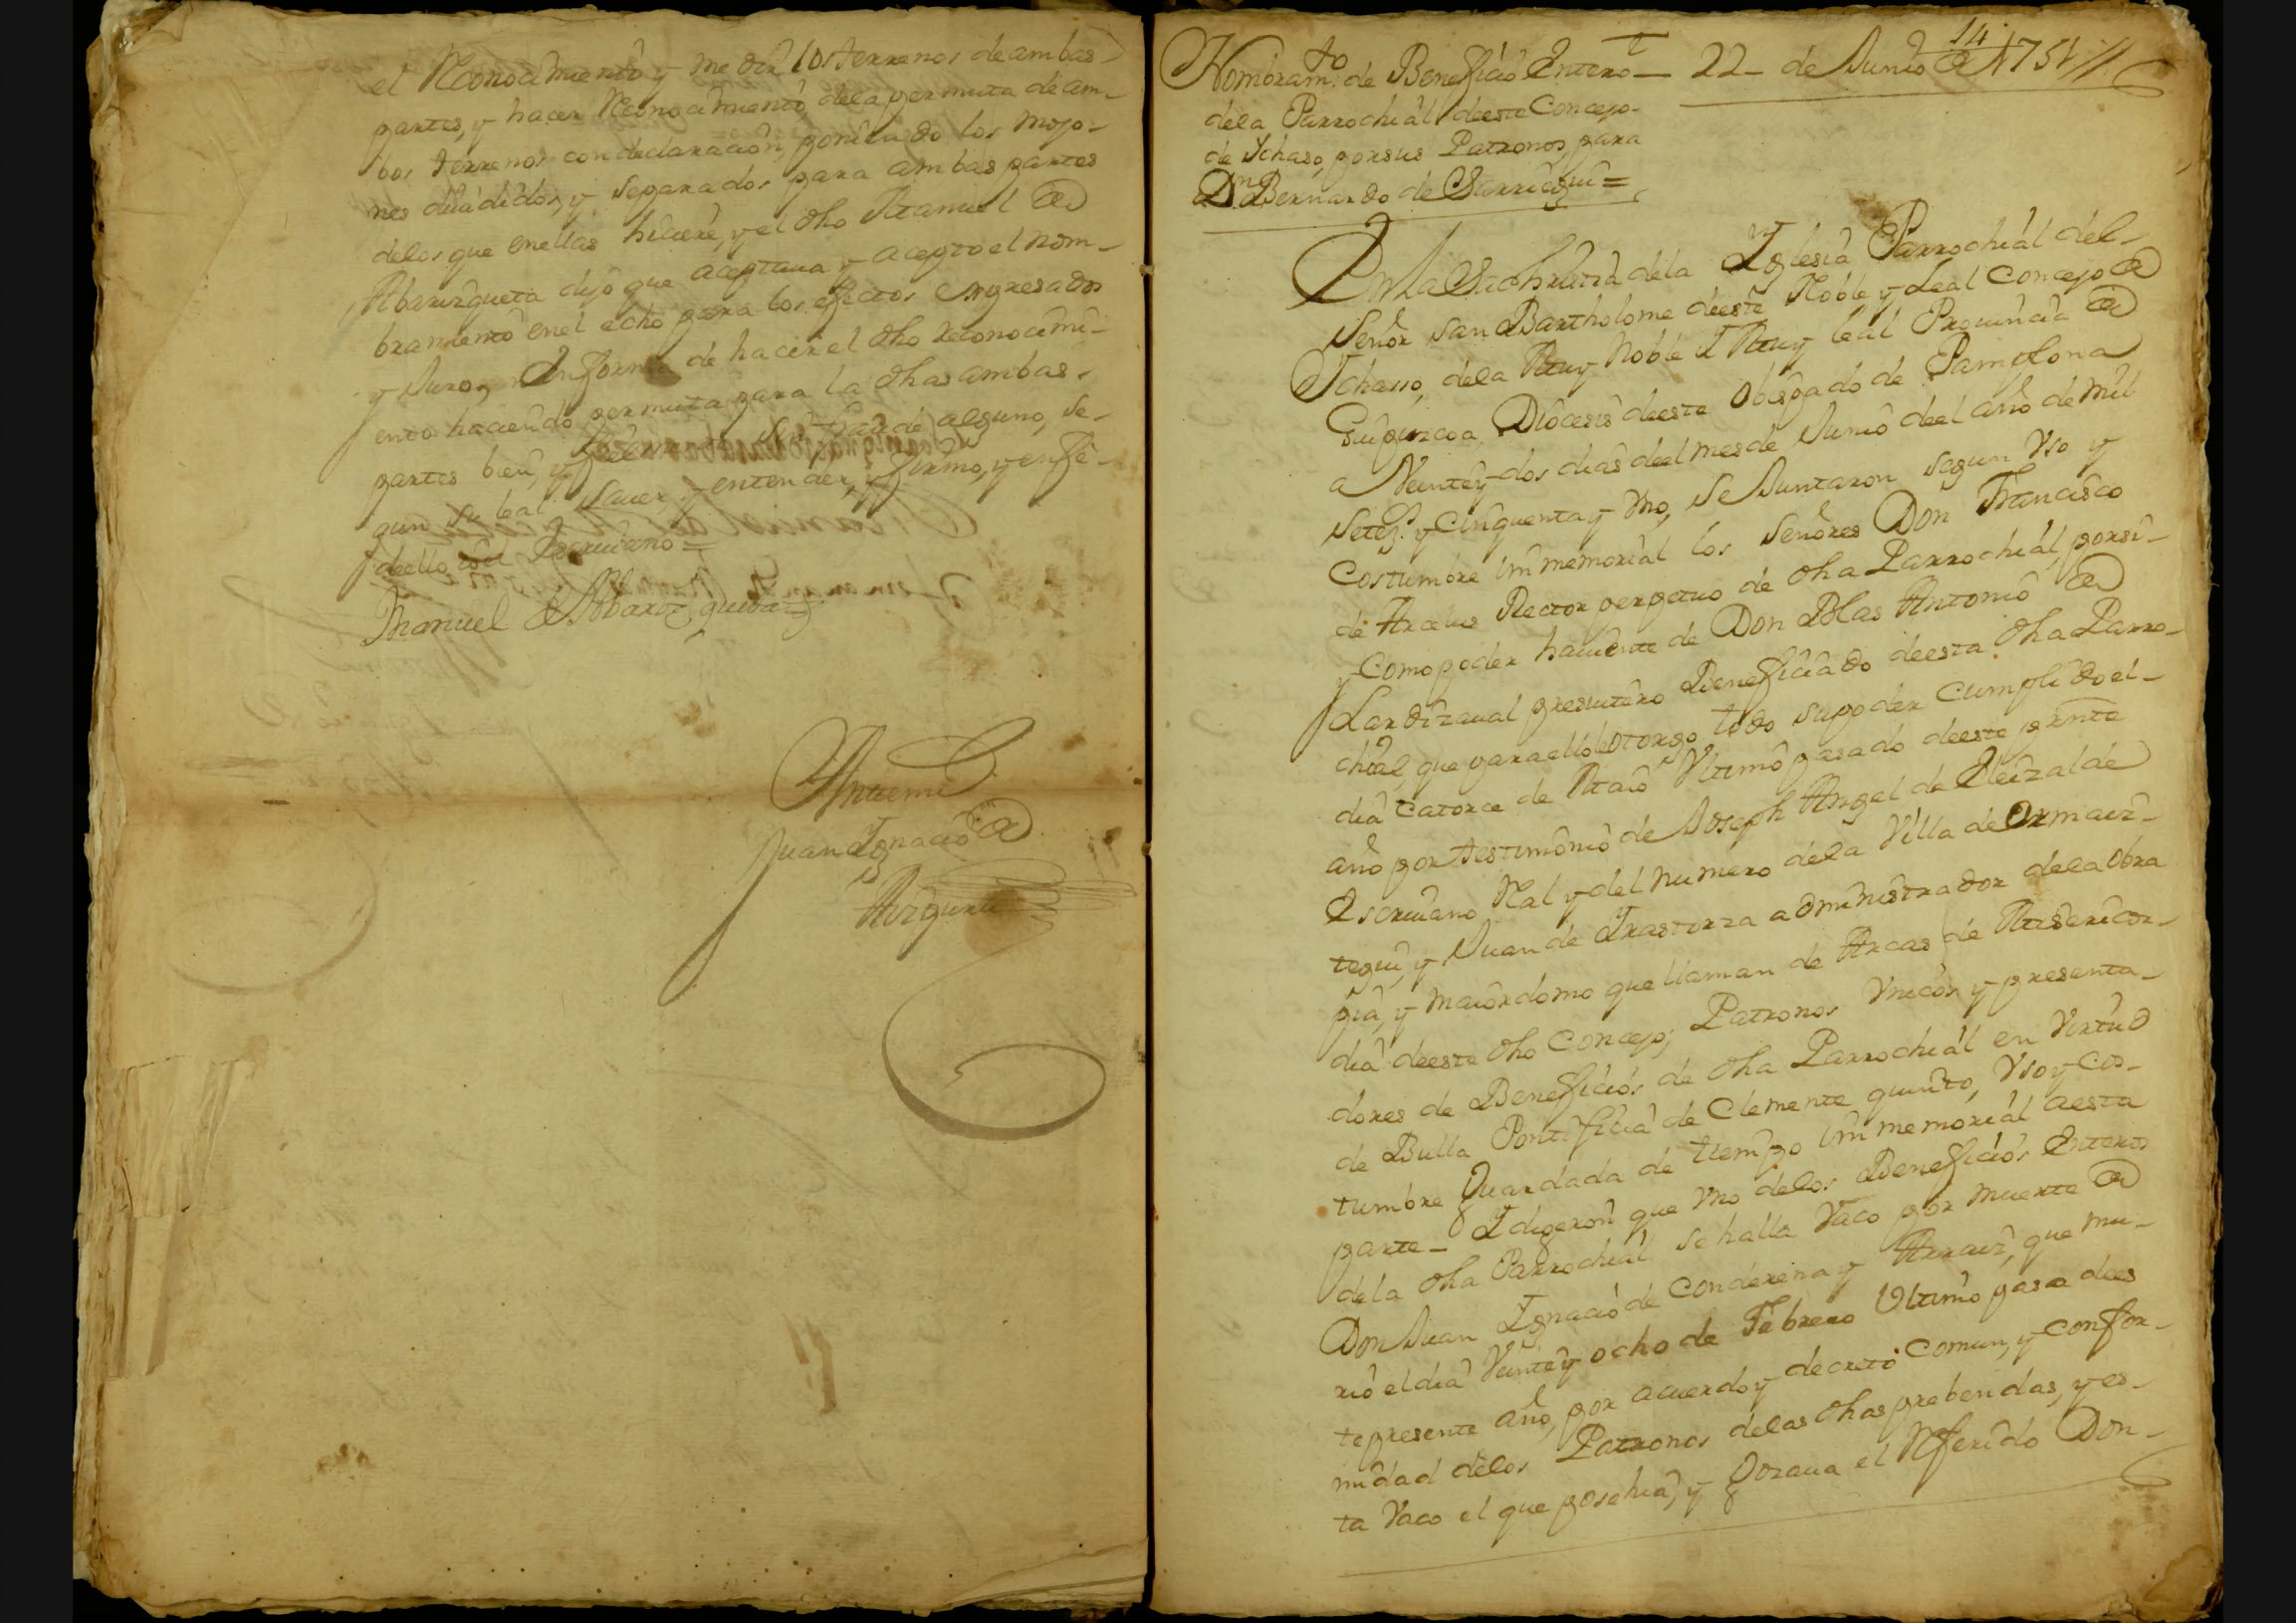 el Reconocimiento y medir los terrenos de ambas
partes, y hacer Reconocimiento, dela permuta de am-
bos terrenos con declaracion, poniendo los mojo-
nes diuididos, y separados para ambas partes
delos que enellas hiciere, y el dho Manuel de
Abarizqueta dijo que aceptaua y acepto el nom-
bramiento enel echo para los efectos expresados
y Juro, en forma de hacer el dho reconocimi-
ento haciendo permuta para la dhas ambas
partes bien, y fielmente sin fraude alguno, se-
gun su leal sauer, y entender, y firmo, y enfe-
deello, yo el Escriuano =
Manuel de Abarizqueta
Antemi
Juan Ignacio de
Aizpuru
14
Nombram.to de Beneficio Entero — 22 - de Junio de 1751 //
dela Parrochial deeste Concejo
de Ichaso, por sus Patronos, para
Dn Bernardo de Sarriegui =
En la Sachristia dela Iglesia Parrochial del
Señor San Bartholome deeste Noble y Leal Concejo de
Ichasso, dela Muy Noble I Muy leal Prouincia de
Guipuzcoa, Diocesis deeste Obispado de Pamplona
a Veinte y dos dias deel mes de Junio deel año de mil
Setez.s y Cinquenta y Vno, Se Juntaron segun Vso y
Costumbre immemorial los Señores Don Francisco
de Arælus Rector perpetuo de dha Parrochial, por si
y Como poder hauiente de Don Blas Antonio de
Lardizaual presuitero Beneficiado deesta dha Parro-
chial, que para ello le otorgo todo su poder Cumplido el
dia Catorce de Maio Vltimo pasado deeste prnte
año por testimonio de Joseph Angel de Eleizalde
Escriuano Real y del numero dela Villa de Ormaiz-
tegui, y Juan de Irastorza administrador dela Obra
pia, y maiordomo que llaman de Arcas de Misericor-
dia deeste dho Concejo; Patronos Vnicos y presenta-
dores de Beneficios de dha Parrochial en Virtud
de Bulla Pontificia de Clemente quinto, Vso y Cos-
tumbre Guardada de tiempo immemorial aesta
parte - I digeron que Vno delos Beneficios Enteros
dela dha Parrochial se halla Vaco por muerte de
Don Juan Ignacio de Conderena y Arraiz, que mu-
rio el dia Veinte y ocho de Febrero Vltimo pasado dees
te presente año, por acuerdo y decreto Comun, y Confor-
midad delos Patronos delas dhas prebendas, y es-
ta Vaco el que posehia, y Gozaua el Referido Don